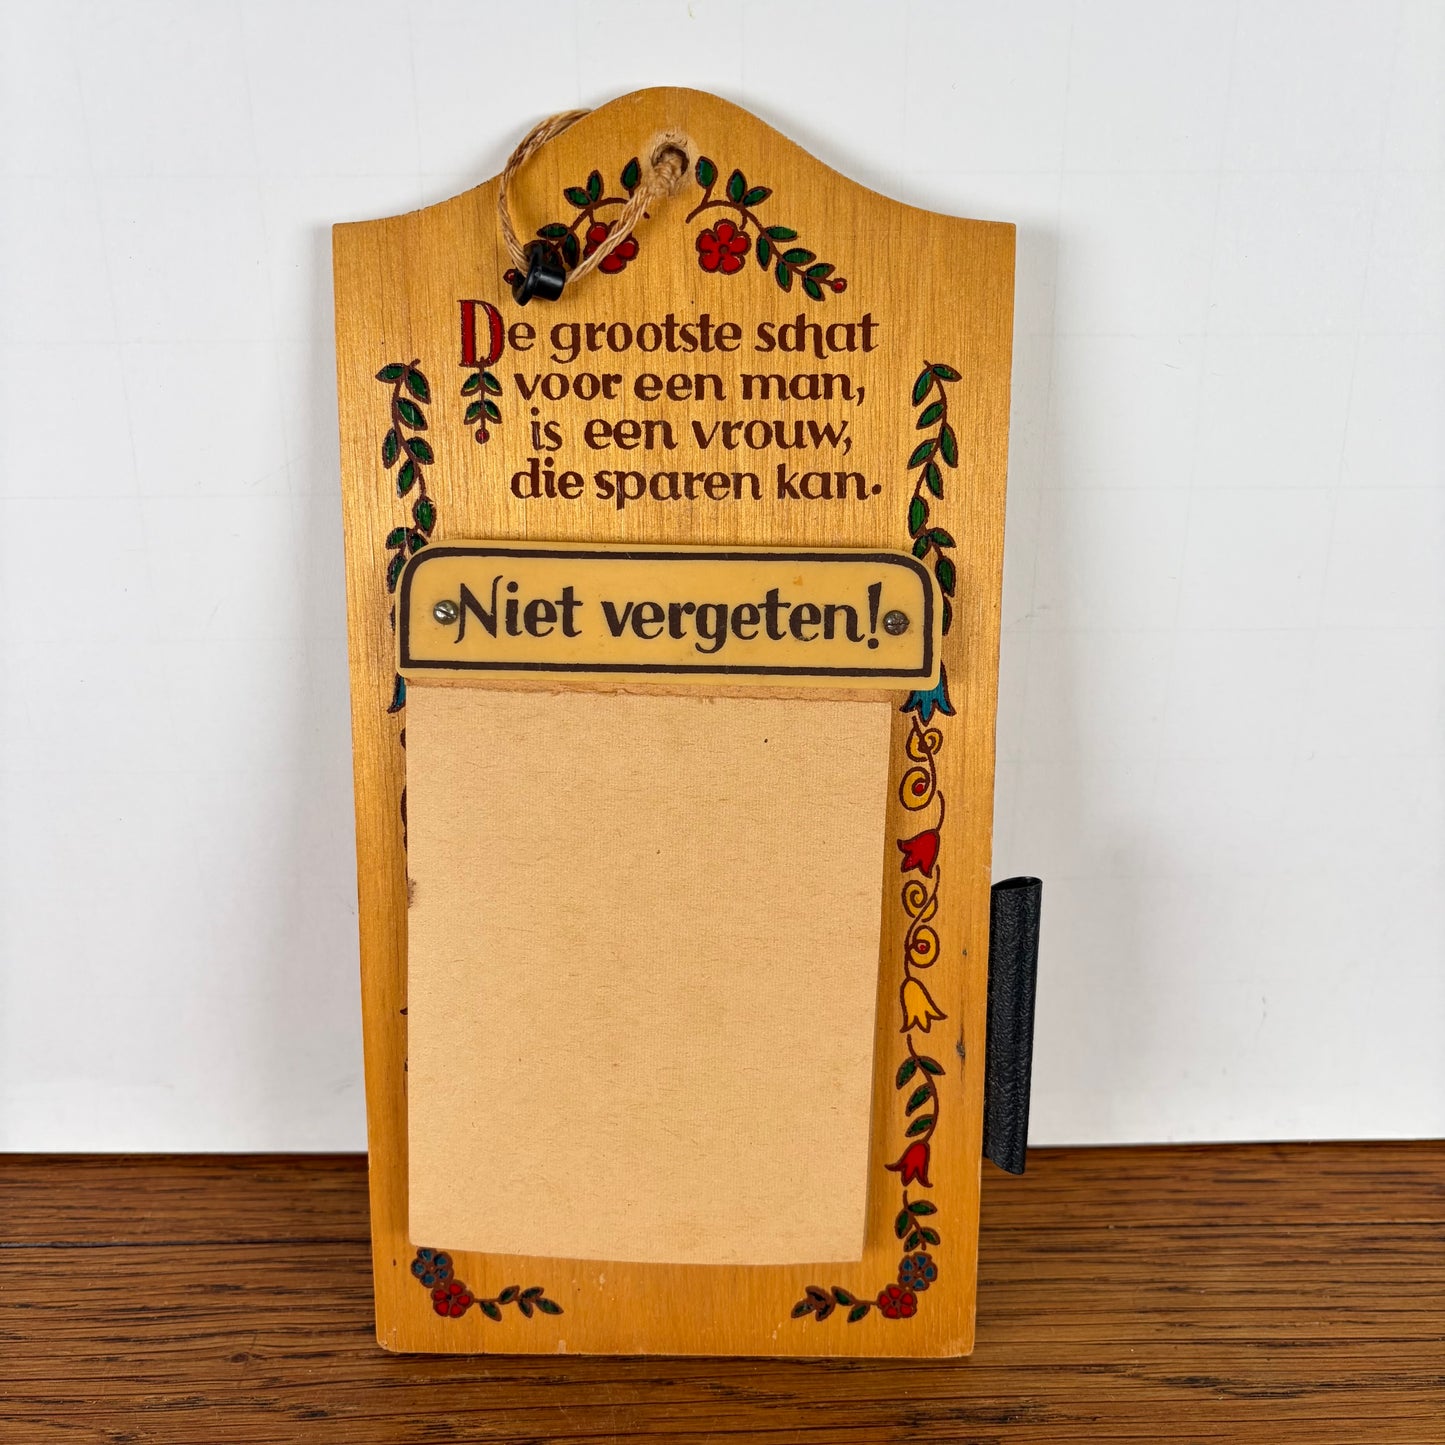 De grootste schat
voor een man,
is een vrouw,
die sparen kan.
Niet vergeten!